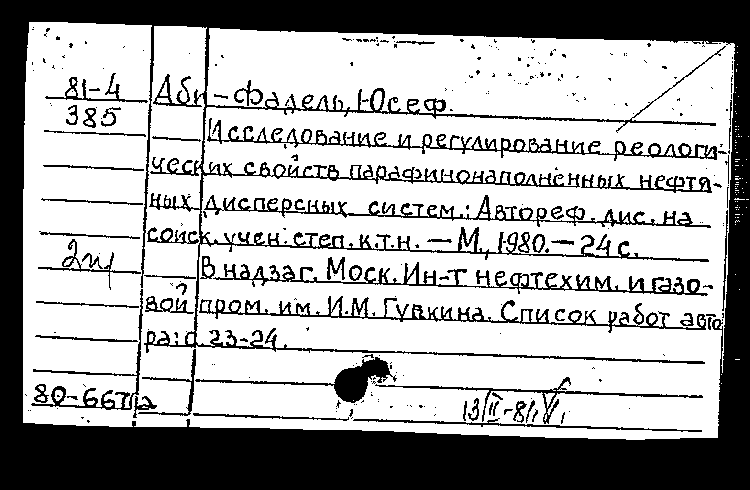 81-4 Аби-Фадель, Юсеф.
385
Исследование и регулирование реологи-
ческих свойств парафинонаполненных нефтя-
ных дисперсных систем.: Автореф. дис. на
соиск. учен. степ. к.т.н. — М., 1980. — 24 с.
В надзаг. Моск. Ин-т нефтехим. и газо-
вой пром. им. И.М. Губкина. Список работ авто
ра: с. 23-24.